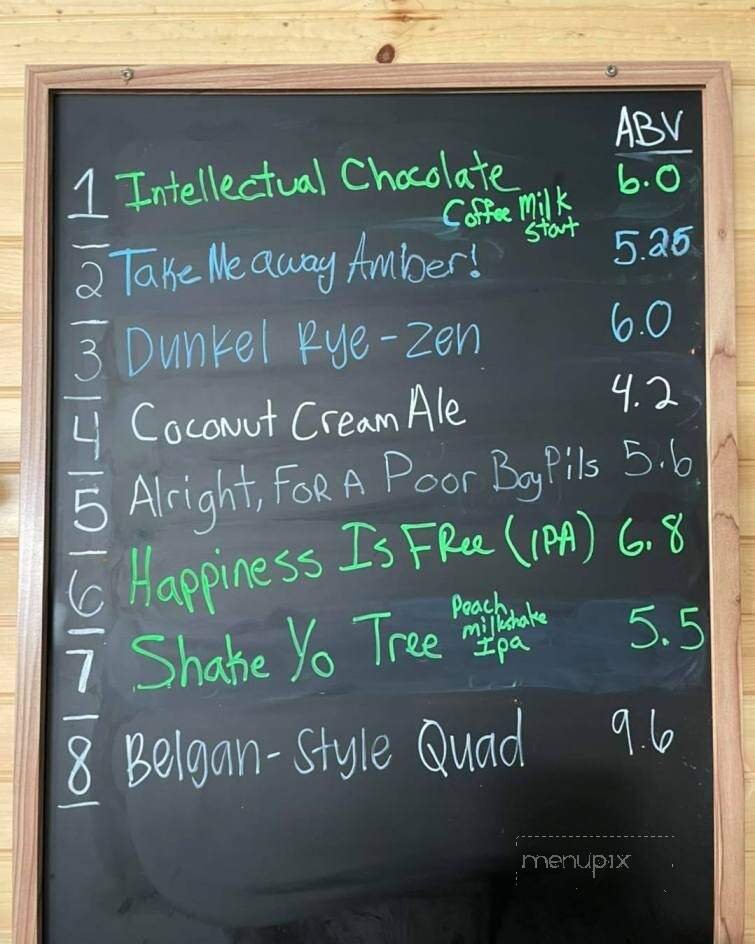 ABV
1 Intellectual Chocolate 6.0
Coffee Milk
Stout
2 Take Me away Amber! 5.25
3 Dunkel Rye-Zen 6.0
4 Coconut Cream Ale 4.2
5 Alright, For A Poor Boy Pils 5.6
6 Happiness Is Free (IPA) 6.8
7 Shake Yo Tree Peach 5.5
milkshake
Ipa
8 Belgan-Style Quad 9.6
menupix